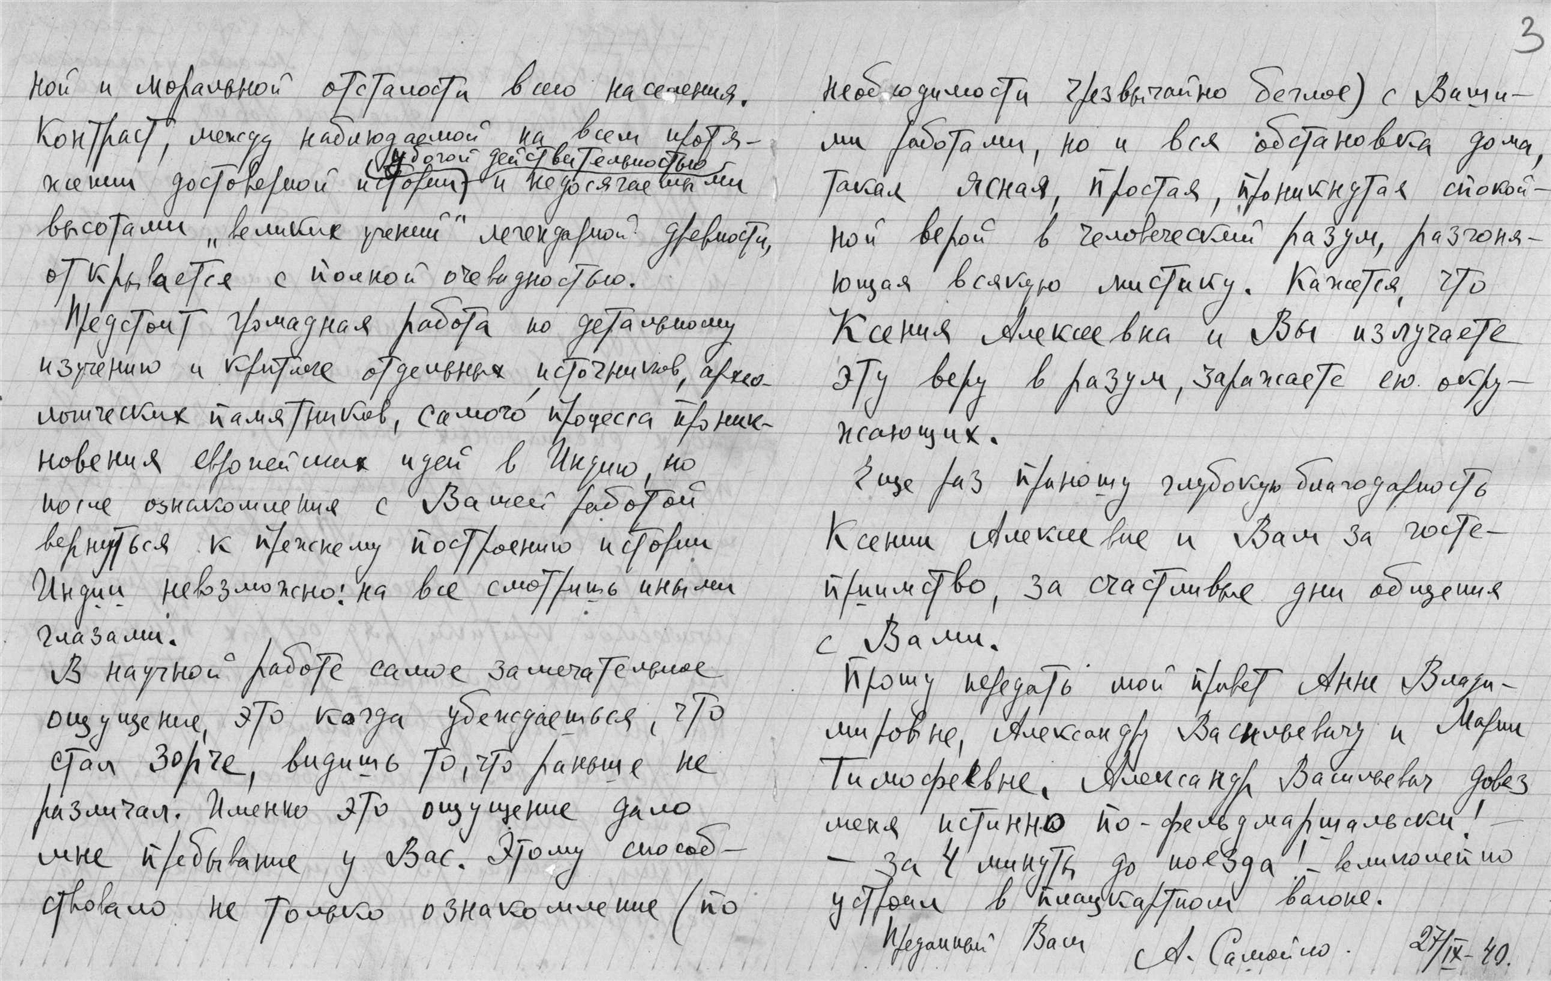 ной и моральной отсталости всего населения.
Контраст, между наблюдаемой на всем протя-
убогой действительностью
жении достоверной истории и недосягаемыми
высотами „великих учений" легендарной древности,
открывается с полной очевидностью.
Предстоит громадная работа по детальному
изучению и критике отдельных источников, архео-
логических памятников, самого процесса проник-
новения европейских идей в Индию, но
после ознакомления с Вашей работой
вернуться к прежнему построению истории
Индии невозможно: на все смотришь иными
глазами.
В научной работе самое замечательное
ощущение, это когда убеждаешься, что
стал зорче, видишь то, что раньше не
различал. Именно это ощущение дало
мне пребывание у Вас. Этому способ-
ствовало не только ознакомление (по
3
необходимости чрезвычайно беглое) с Ваши-
ми работами, но и вся обстановка дома,
такая ясная, простая, проникнутая спокой-
ной верой в человеческий разум, разгоня-
ющая всякую мистику. Кажется, что
Ксения Алексеевна и Вы излучаете
эту веру в разум, заражаете ею окру-
жающих.
Еще раз приношу глубокую благодарность
Ксении Алексеевне и Вам за госте-
приимство, за счастливые дни общения
с Вами.
Прошу передать мой привет Анне Влади-
мировне, Александру Васильевичу и Марии
Тимофеевне. Александр Васильевич довез
меня истинно по-фельдмаршальски! -
- за 4 минуты до поезда! - великолепно
устроил в плацкартном вагоне.
Преданный Вам А. Самойло. 27/IX-40.